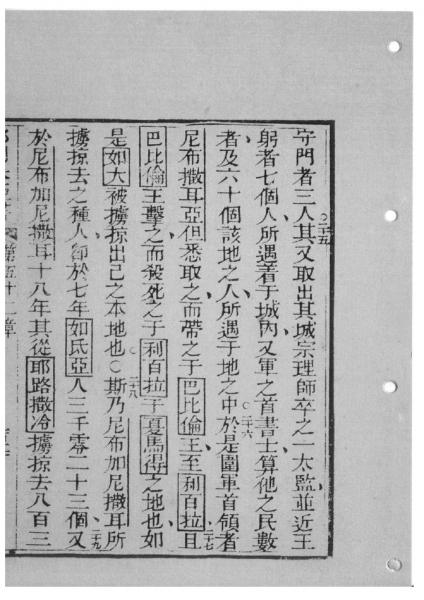 守門者三人其又取出其城宗理師卒之一太監並近王
二十五
躬者七個人所遇着于城內又軍之首書士算他之民數
者及六十個該地之人所遇于地之中於是圍軍首領者
二十六
尼布撒耳亞但悉取之而帶之于巴比倫王至利百拉且
二十七
巴比倫王擊之而殺死之于利百拉于夏馬得之地也如
是如大被擄掠出己之本地也○斯乃尼布加尼撒耳所
二十八
擄掠去之種人卽於七年如氏亞人三千零二十三個又
二十九
於尼布加尼撒耳十八年其從耶路撒冷擄掠去八百三
第五十二章